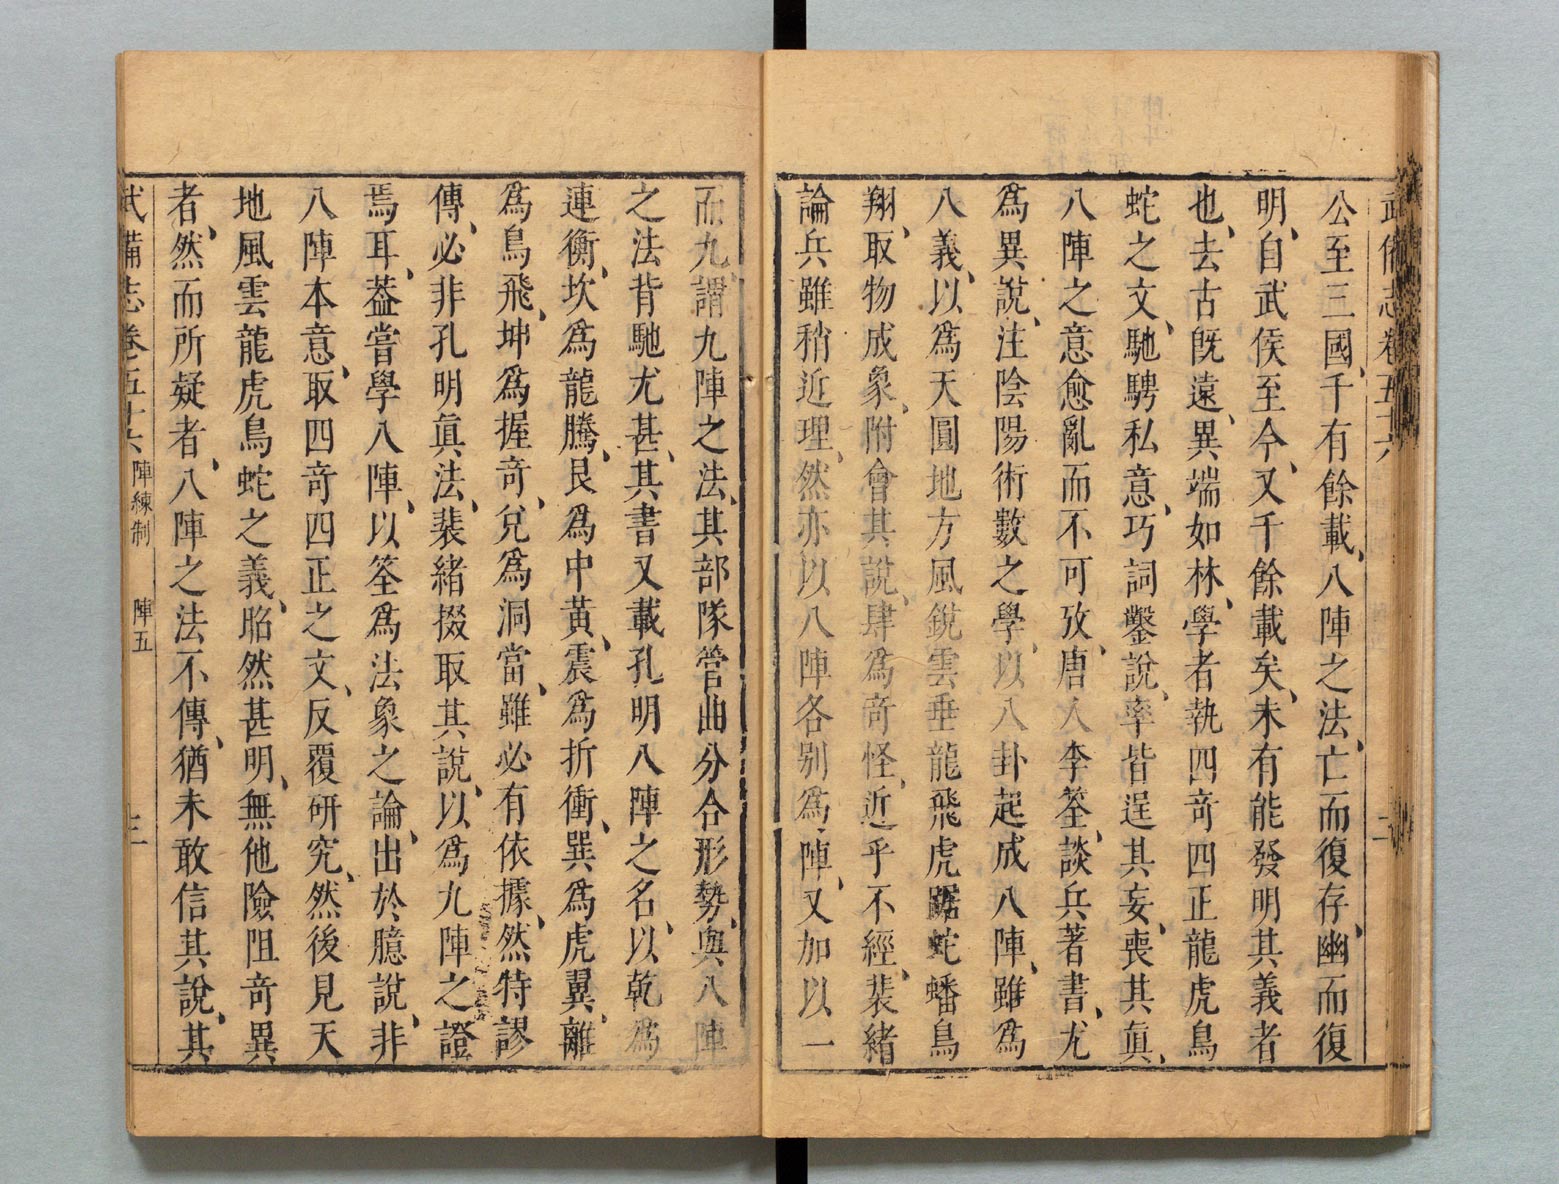 武備志卷五十六 二
公至三國、千有餘載、八陣之法、亡而復存、幽而復
明、自武侯至今、又千餘載矣、未有能發明其義者
也、去古旣遠、異端如林、學者執四竒四正龍虎鳥
蛇之文、馳騁私意、巧詞鑿說、率皆逞其妄、喪其眞、
八陣之意愈亂而不可攷、唐人李筌、談兵著書、尤
爲異說、注陰陽術數之學、以八卦起成八陣、雖爲
八義、以爲天圓地方風銳雲垂龍飛虎踞蛇蟠鳥
翔、取物成象、附會其說、肆爲竒怪、近乎不經、裴緒
論兵雖稍近理、然亦以八陣各别爲陣、又加以一
而九、謂九陣之法、其部隊營曲分合形勢、與八陣
之法背馳尤甚、其書又載孔明八陣之名、以乾爲
連衡、坎爲龍騰、艮爲中黃、震爲折衝、巽爲虎翼、離
爲鳥飛、坤爲握竒、兌爲洞當、雖必有依據、然特謬
傳、必非孔明眞法、裴緒掇取其說、以爲九陣之證
焉耳、葢嘗學八陣、以筌爲法象之論、出於臆說、非
八陣本意、取四竒四正之文、反覆硏究、然後見天
地風雲龍虎鳥蛇之義、昭然甚明、無他險阻竒異
者、然而所疑者、八陣之法不傳、猶未敢信其說、其
武備志卷五十六 陣練制 陣五 三